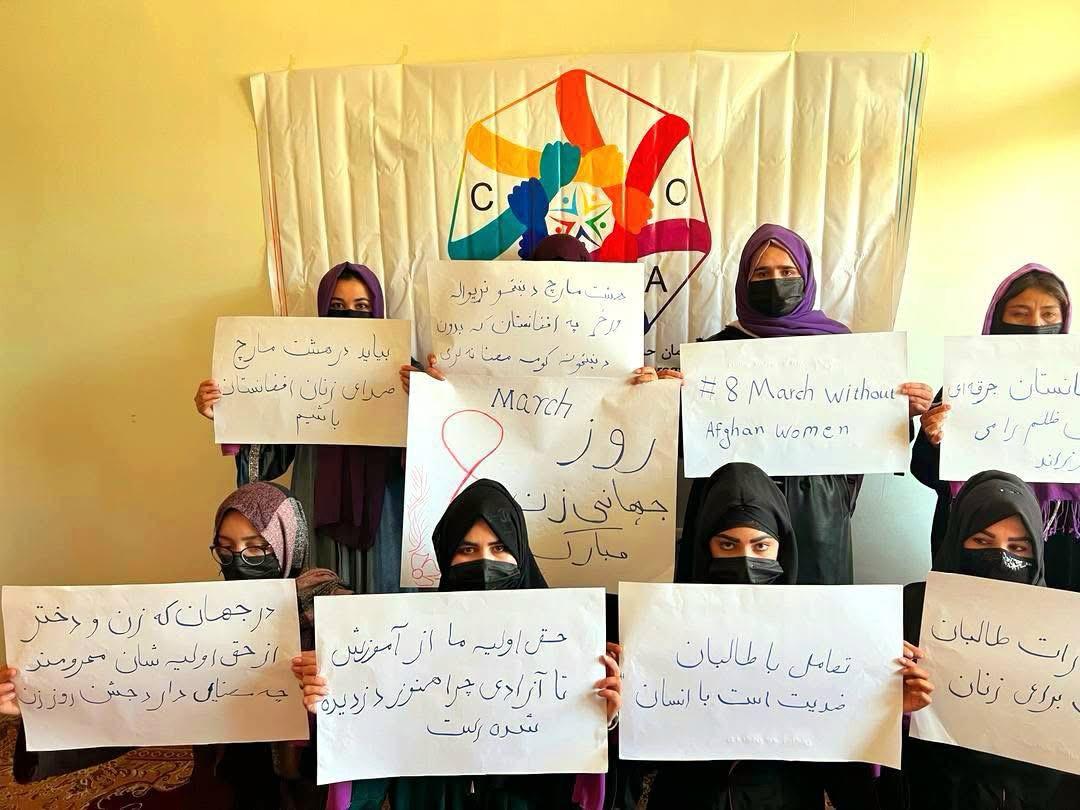 C
O
A
بیاید در هشت مارچ
صدای زنان افغانستان
باشیم
هشت مارچ د ښځو نړیواله
ورځ په افغانستان که بدون
د ښځونه کومه معنا نه لری
March
8
روز
جهانی زن
مبارک
# 8 March without
Afghan women
نستان جرقه‌ای
ظلم را می
زاند
در جهان که زن و دختر
از حق اولیه شان محرومند
چه معنای دارد جشن روز زن
حق اولیه ما از آموزش
تا آزادی چرا هنوز دزدیده
شده است
تعامل با طالبان
ضدیت است با انسان
رات طالبان
برای زنان